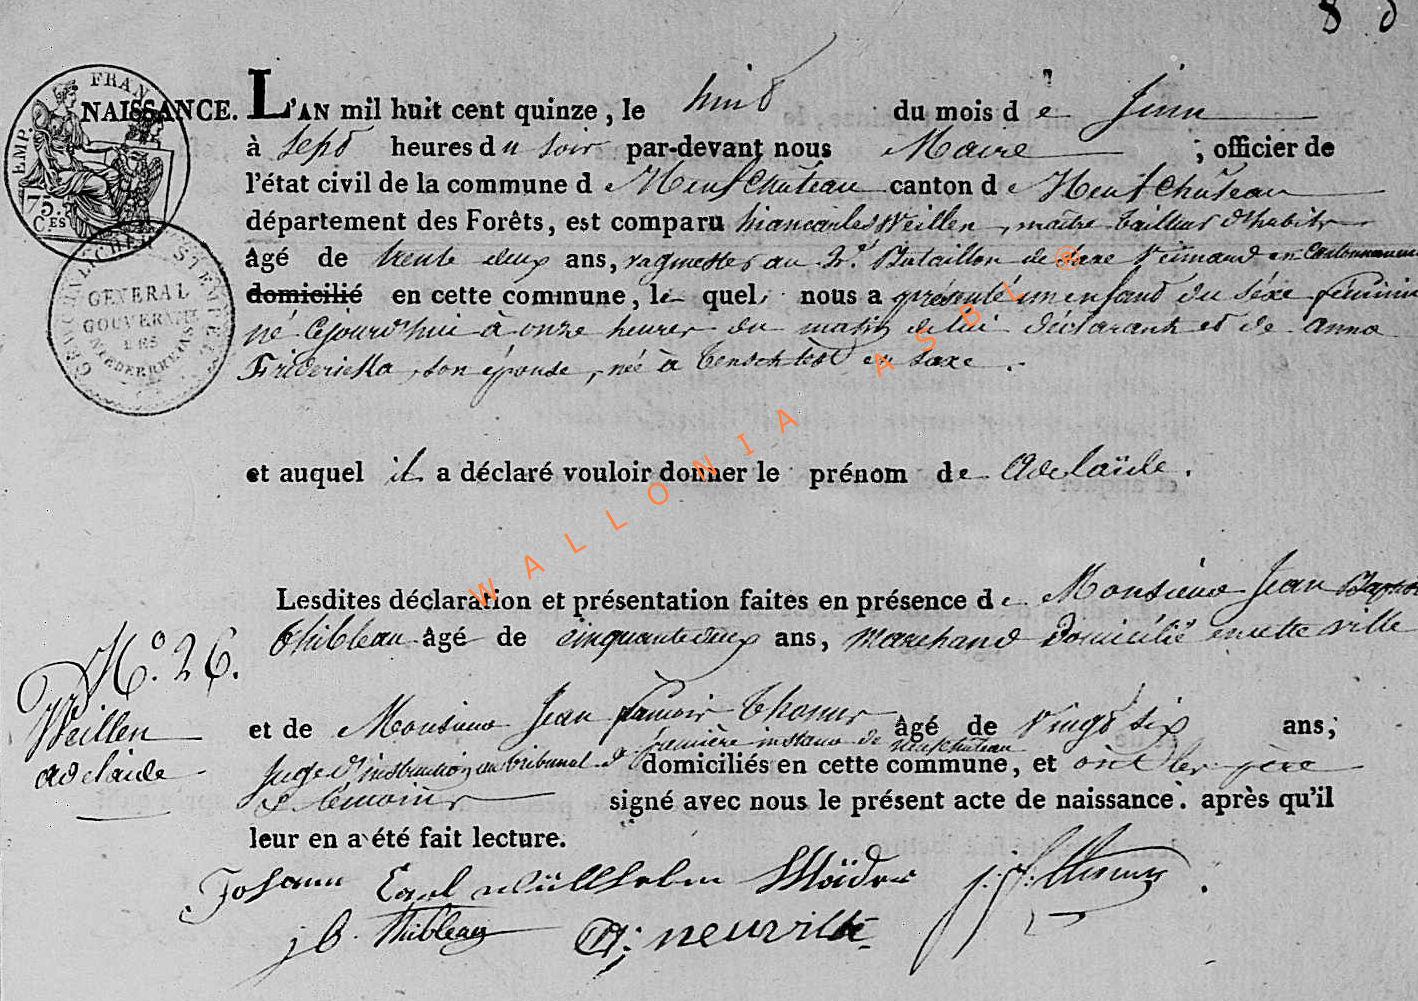 8
NAISSANCE. L'AN mil huit cent quinze, le huit du mois de Juin
à sept heures du soir par-devant nous Maire, officier de
l'état civil de la commune de Neufchâteau canton de Neufchâteau
département des Forêts, est comparu Weillen, maître tailleur d'habits
âgé de trente deux ans, vagmestes au Bataillon de Saxe en Cantonnement
domicilié en cette commune, le quel nous a présenté un enfant du séxe féminin
né cejourd'hui à onze heures du matin de lui déclarant et de anna
Friderieka, son épouse, née à en Saxe.
et auquel il a déclaré vouloir donner le prénom de adelaïde.
Lesdites déclaration et présentation faites en présence de Monsieur Jean Baptiste
thibleau âgé de cinquante deux ans, marchand domicilié en cette ville
et de Monsieur Jean thomes âgé de vingt six ans;
juge d'instruction au tribunal de première instance de neufchâteau domiciliés en cette commune, et ont les père
et témoins signé avec nous le présent acte de naissance. après qu'il
leur en a été fait lecture.
N.° 26.
Weillen
adelaide
Johann Carl
j B. thibleau neuville
FRAN
EMP.
75.
CES
STEMPEL
GENERAL
GOUVERNEM
DES
NIEDERRHEINS
WALLONIA ASBL
®